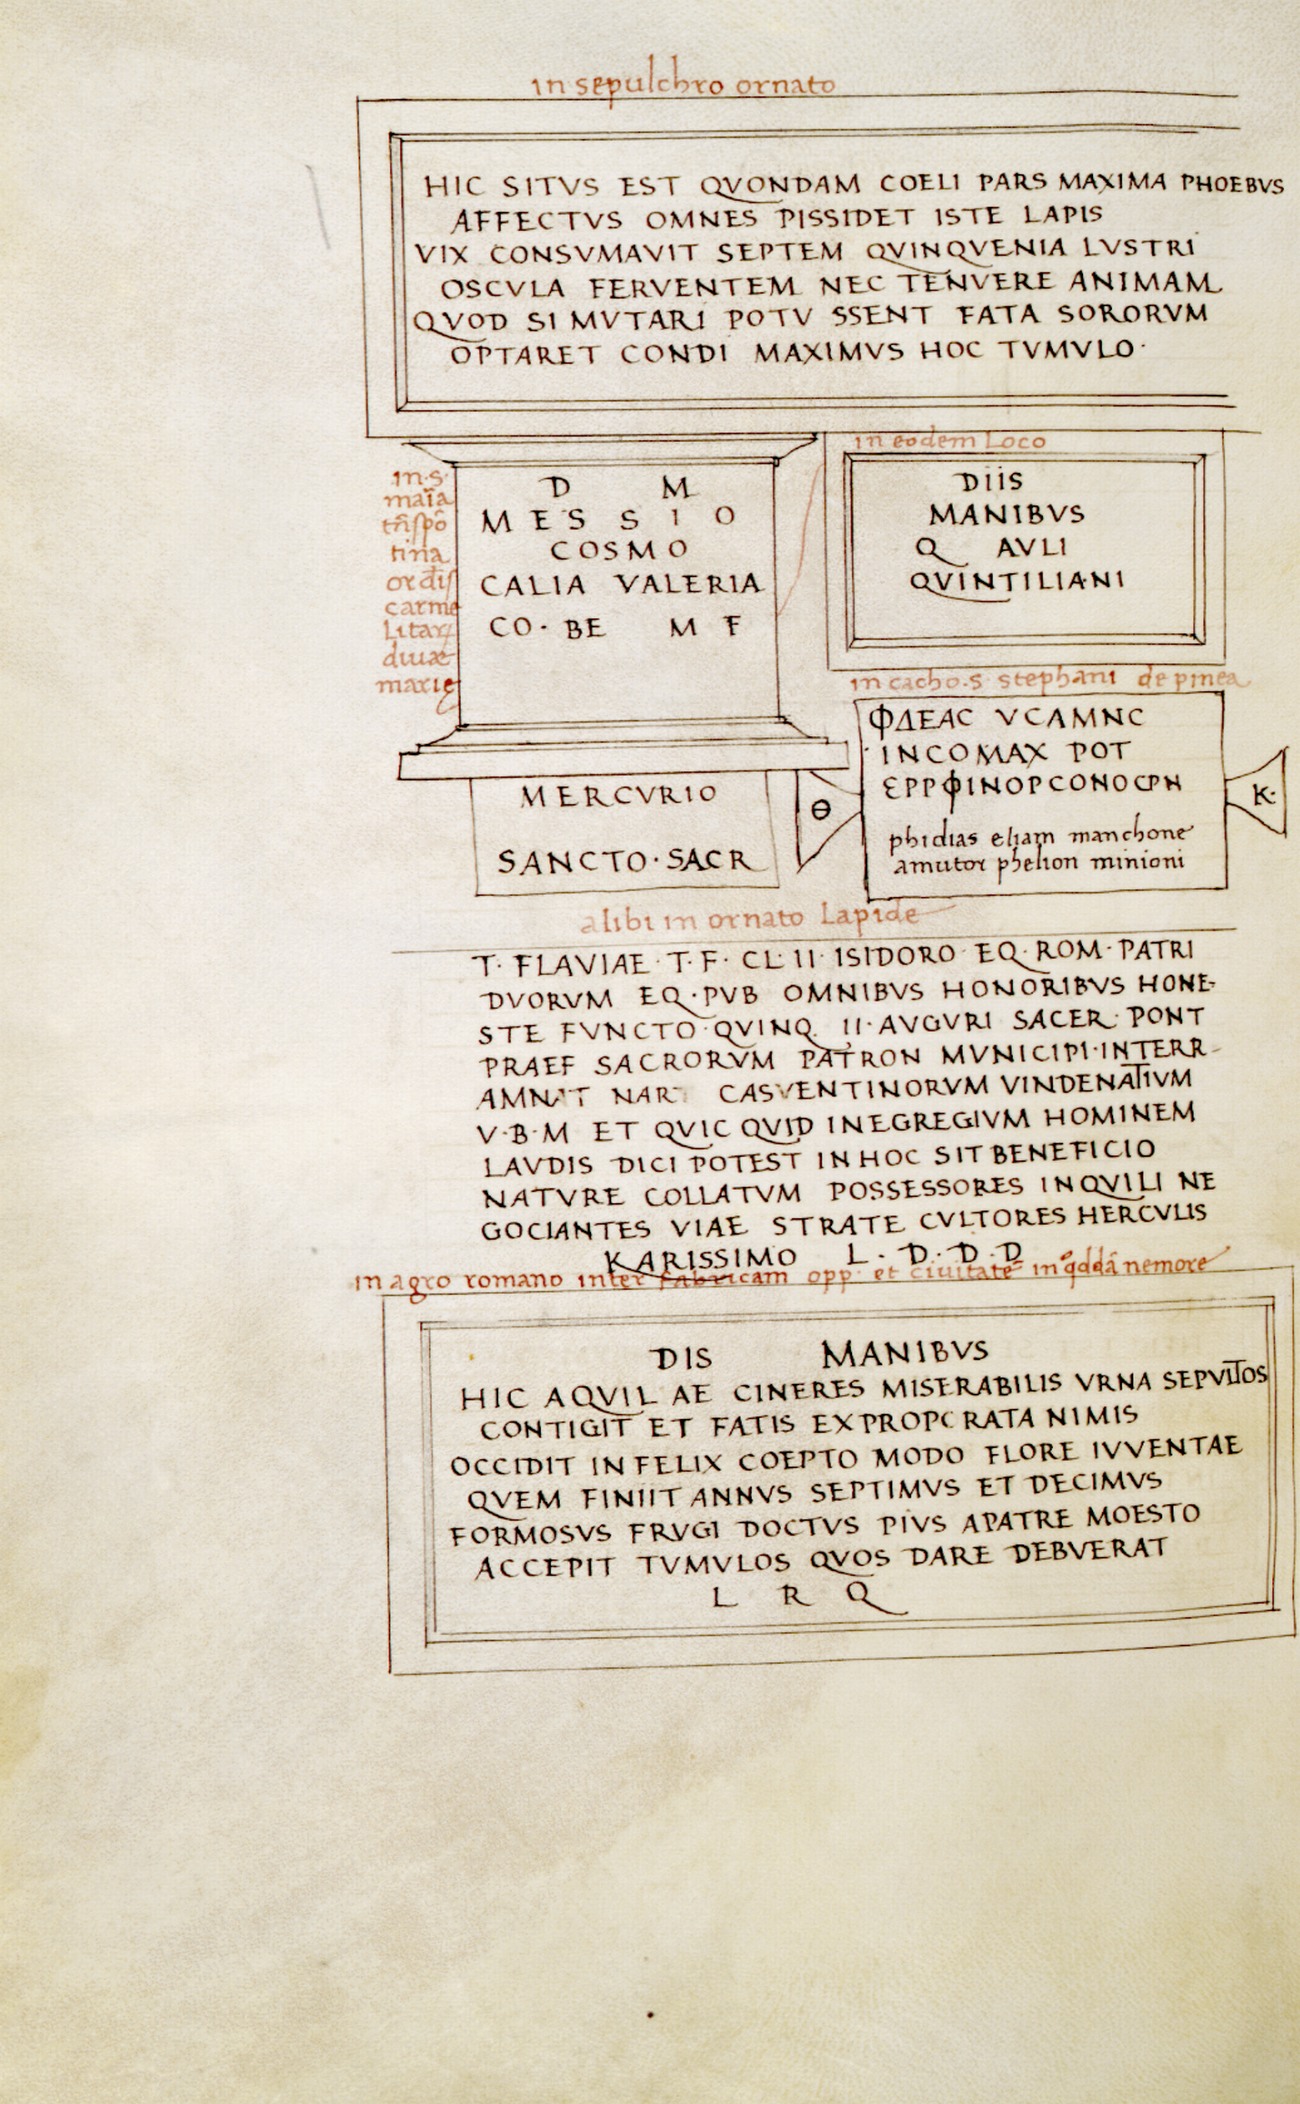 in sepulchro ornato
HIC SITVS EST QVONDAM COELI PARS MAXIMA PHOEBVS
AFFECTVS OMNES PISSIDET ISTE LAPIS
VIX CONSVMAVIT SEPTEM QVINQVENIA LVSTRI
OSCVLA FERVENTEM NEC TENVERE ANIMAM
QVOD SI MVTARI POTV SSENT FATA SORORVM
OPTARET CONDI MAXIMVS HOC TVMVLO·
in·s·
maīa
tina
carme
diuæ
marię
D M
MES S I O
COSMO
CALIA VALERIA
CO· BE M F
MERCVRIO
SANCTO·SACR
in eodem Loco
DIIS
MANIBVS
Q AVLI
QVINTILIANI
in cacho·s stephani de pinea
ΦΔEAC VCAMNC
INCOMAX POT
ΕΡΡΦΙΝΟΡCΟΝΟCΡΝ
phidias eliam manchone
amutor phelion minioni
Θ
K·
alibi in ornato Lapide
T· FLAVIAE·T·F· CL·II·ISIDORO EQ·ROM·PATRI
DVORVM EQ·PVB OMNIBVS HONORIBVS HONE-
STE FVNCTO·QVINQ II·AVGVRI SACER·PONT
PRAEF SACRORVM PATRON MVNICIPI·INTERR-
NAR CASVENTINORVM VINDENATIVM
V·B·M ET QVIC QVID INEGREGIVM HOMINEM
LAVDIS DICI POTEST IN HOC SIT BENEFICIO
NATVRE COLLATVM POSSESSORES INQVILI NE
GOCIANTES VIAE STRATE CVLTORES HERCVLIS
KARISSIMO L·D·D·D
in agro romano inter fabricam opp· et ciuitate in nemore
DIS MANIBVS
HIC AQVIL AE CINERES MISERABILIS VRNA SEPVLTOS
CONTIGIT ET FATIS EXPROPCRATA NIMIS
OCCIDIT INFELIX COEPTO MODO FLORE IVVENTAE
QVEM FINIIT ANNVS SEPTIMVS ET DECIMVS
FORMOSVS FRVGI DOCTVS PIVS APATRE MOESTO
ACCEPIT TVMVLOS QVOS DARE DEBVERAT
L R Q